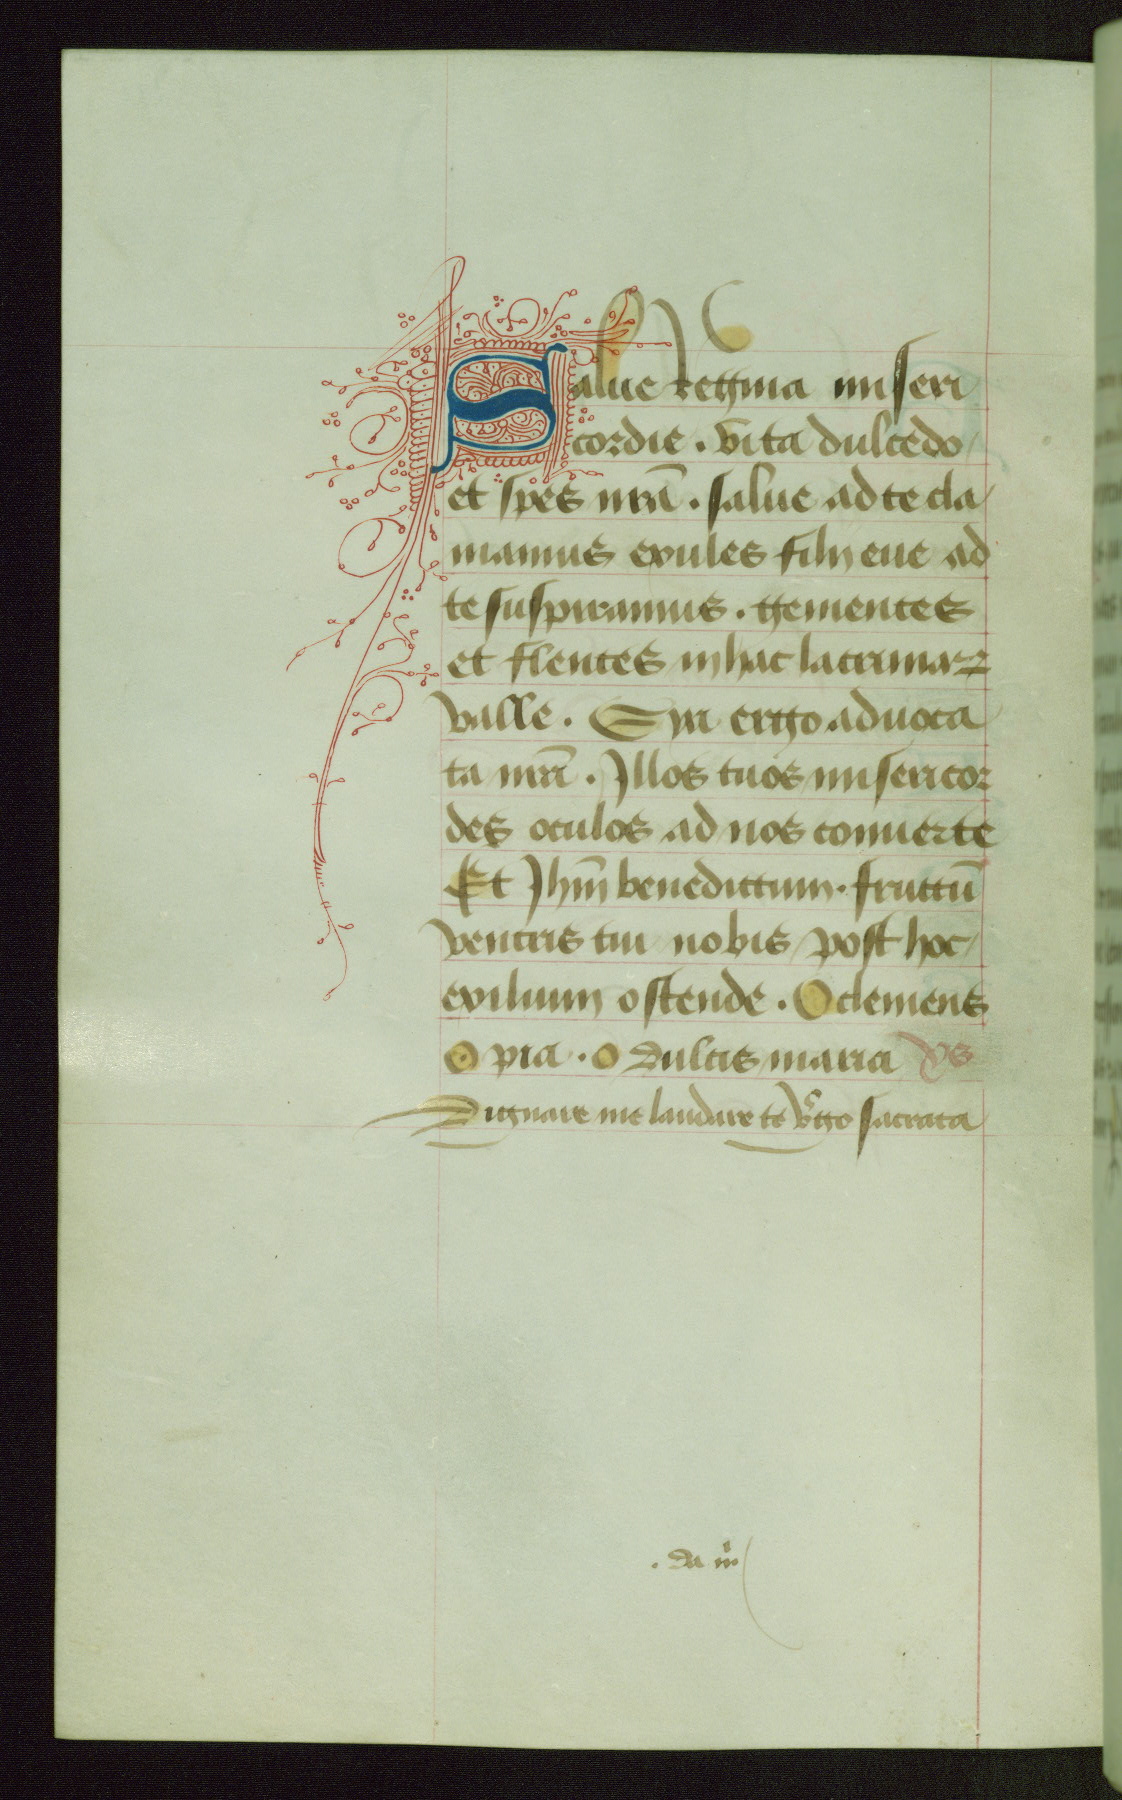 Salue regina miseri
cordie . vita dulcedo
et spes nrā . salue ad te cla
mamus exules filij eue ad
te suspiramus . gementes
et flentes in hac lacrimaꝝ
valle . Eya ergo aduoca
ta nrā . Illos tuos misericor
des oculos ad nos conuerte
Et Jhm̄ benedictum . fructū
ventris tui nobis post hoc
exilium ostende . O clemens
o pia . o dulcis maria vs
Dignare me laudare te vͥgo sacrata
. da m̄